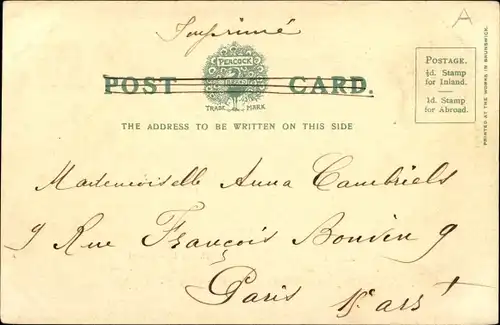 Imprimé
A
PEACOCK
BRAND
TRADE MARK
POST CARD.
THE ADDRESS TO BE WRITTEN ON THIS SIDE
POSTAGE.
½d. Stamp
for Inland.
1d. Stamp
for Abroad.
PRINTED AT THE WORKS IN BRUNSWICK.
Mademoiselle Anna Cambriels
9 Rue François Bonvin 9
Paris 15e arrt